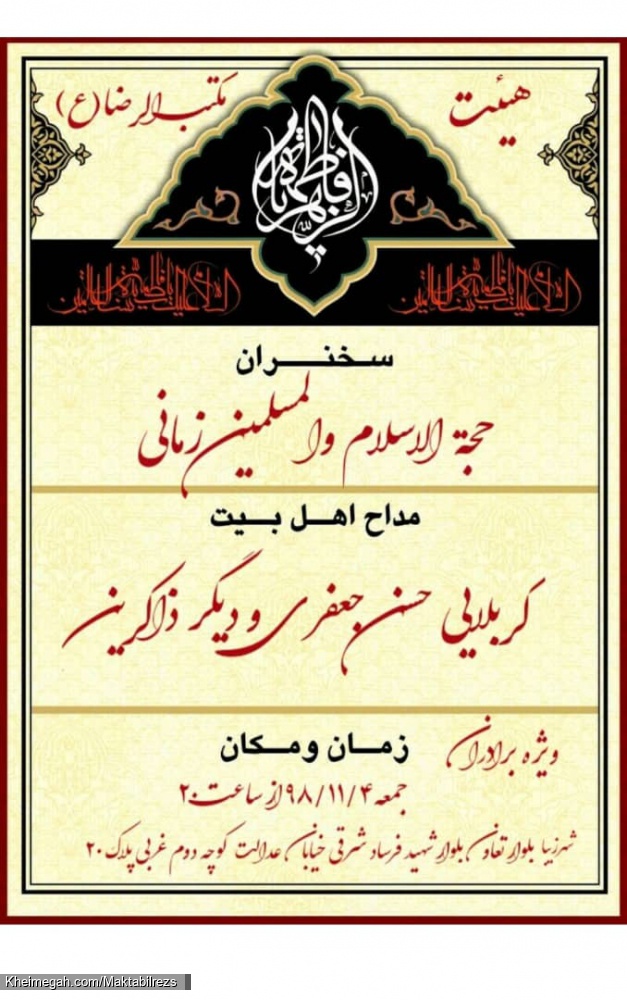 هیئت
مکتب الرضا(ع)
یا فاطمة الزهرا
السلام علیک یا فاطمة سیدة نساء العالمین
السلام علیک یا فاطمة سیدة نساء العالمین
سخنران
حجة الاسلام والمسلمین زمانی
مداح اهل بیت
کربلایی حسن جعفری و دیگر ذاکرین
ویژه برادران
زمان ومکان
جمعه ۹۸/۱۱/۴ از ساعت ۲۰
شهرزیبا بلوار تعاون بلوار شهید فرساد شرقی خیابان عدالت کوچه دوم غربی پلاک ۲۰
Kheimegah.com/Maktabilrezs